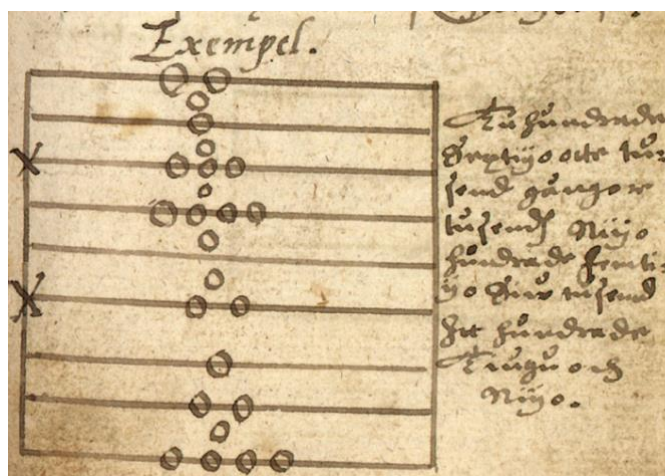 Exempel.
Tuhundrade
Sextijo otte tu
send gångor
tusend Nijo
hundrade femti
jo Siu tusend
ett hundrade
Tiugu och
Nijo.